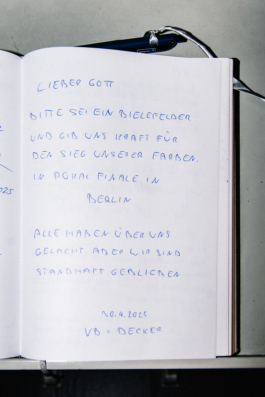 LIEBER GOTT
BITTE SEI EIN BIELEFELDER
UND GIB UNS KRAFT FÜR
DEN SIEG UNSERER FARBEN.
IM POKAL FINALE IN
BERLIN
ALLE HABEN ÜBER UNS
GELACHT. ABER WIR SIND
STANDHAFT GEBLIEBEN
30.4.2025
025